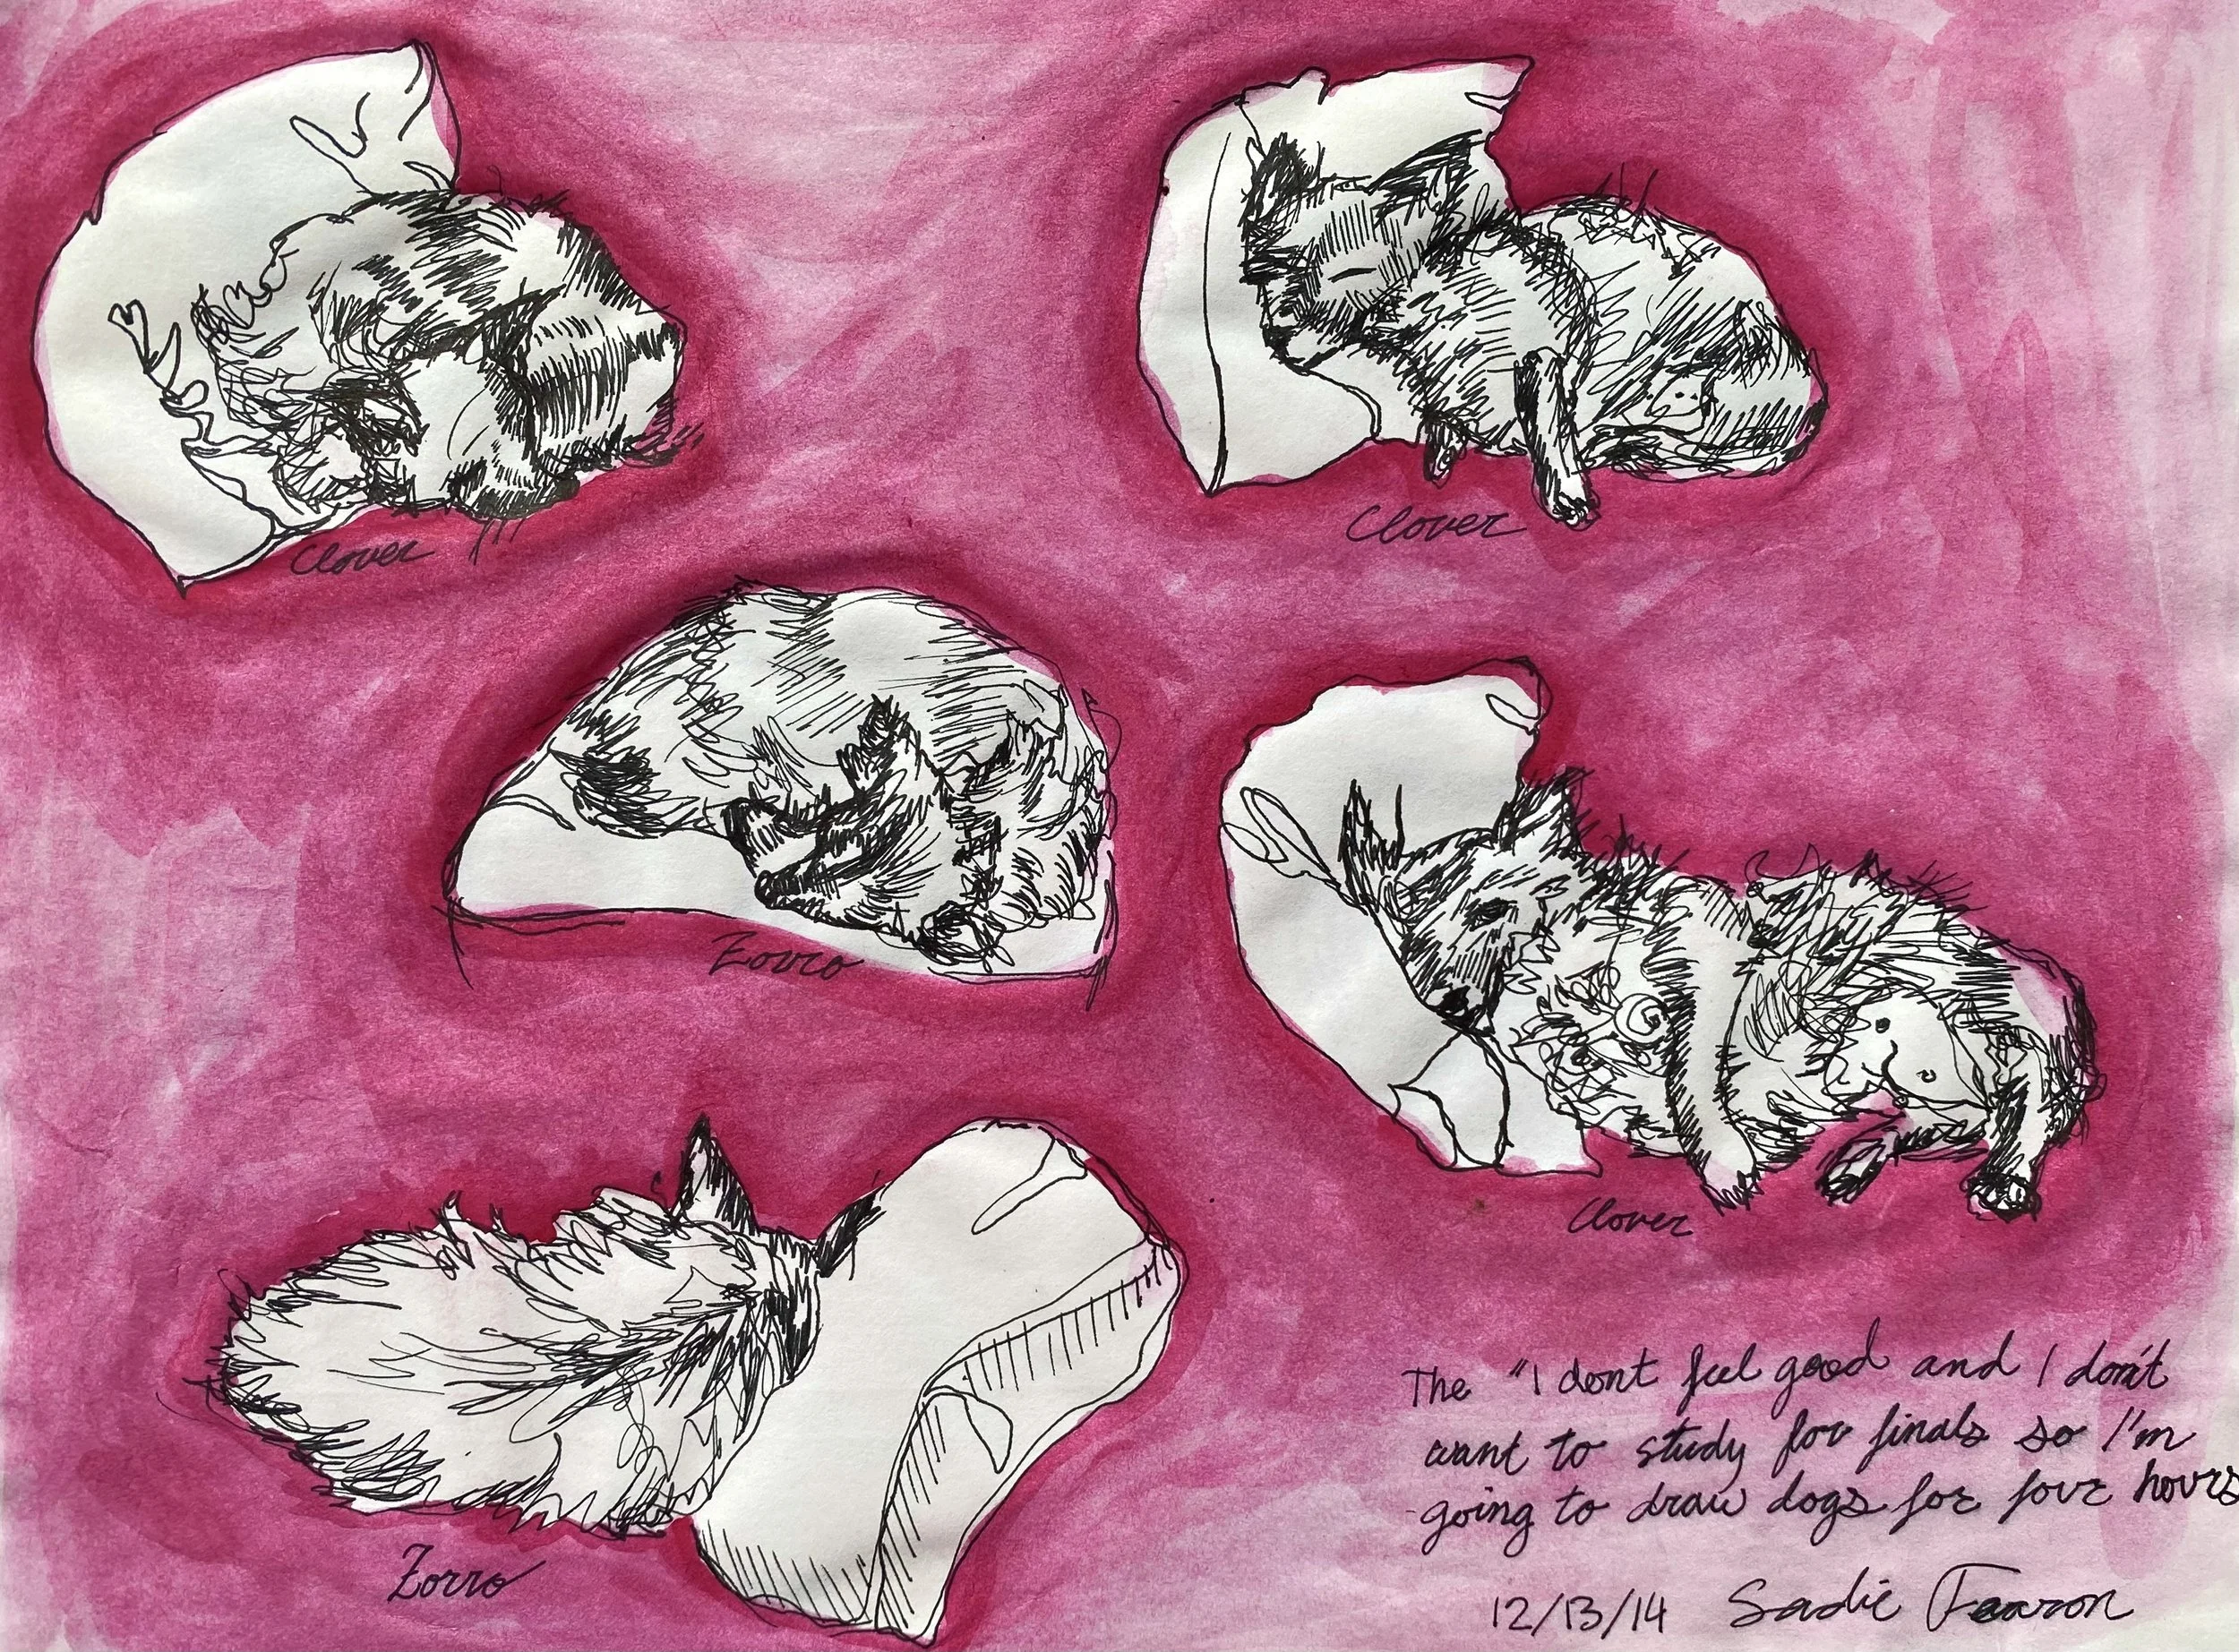 Clover
Clover
Zorro
Clover
Zorro
The "I dont feel good and I don't
want to study for finals so I'm
going to draw dogs for four hours
12/13/14 Sadie Fearron